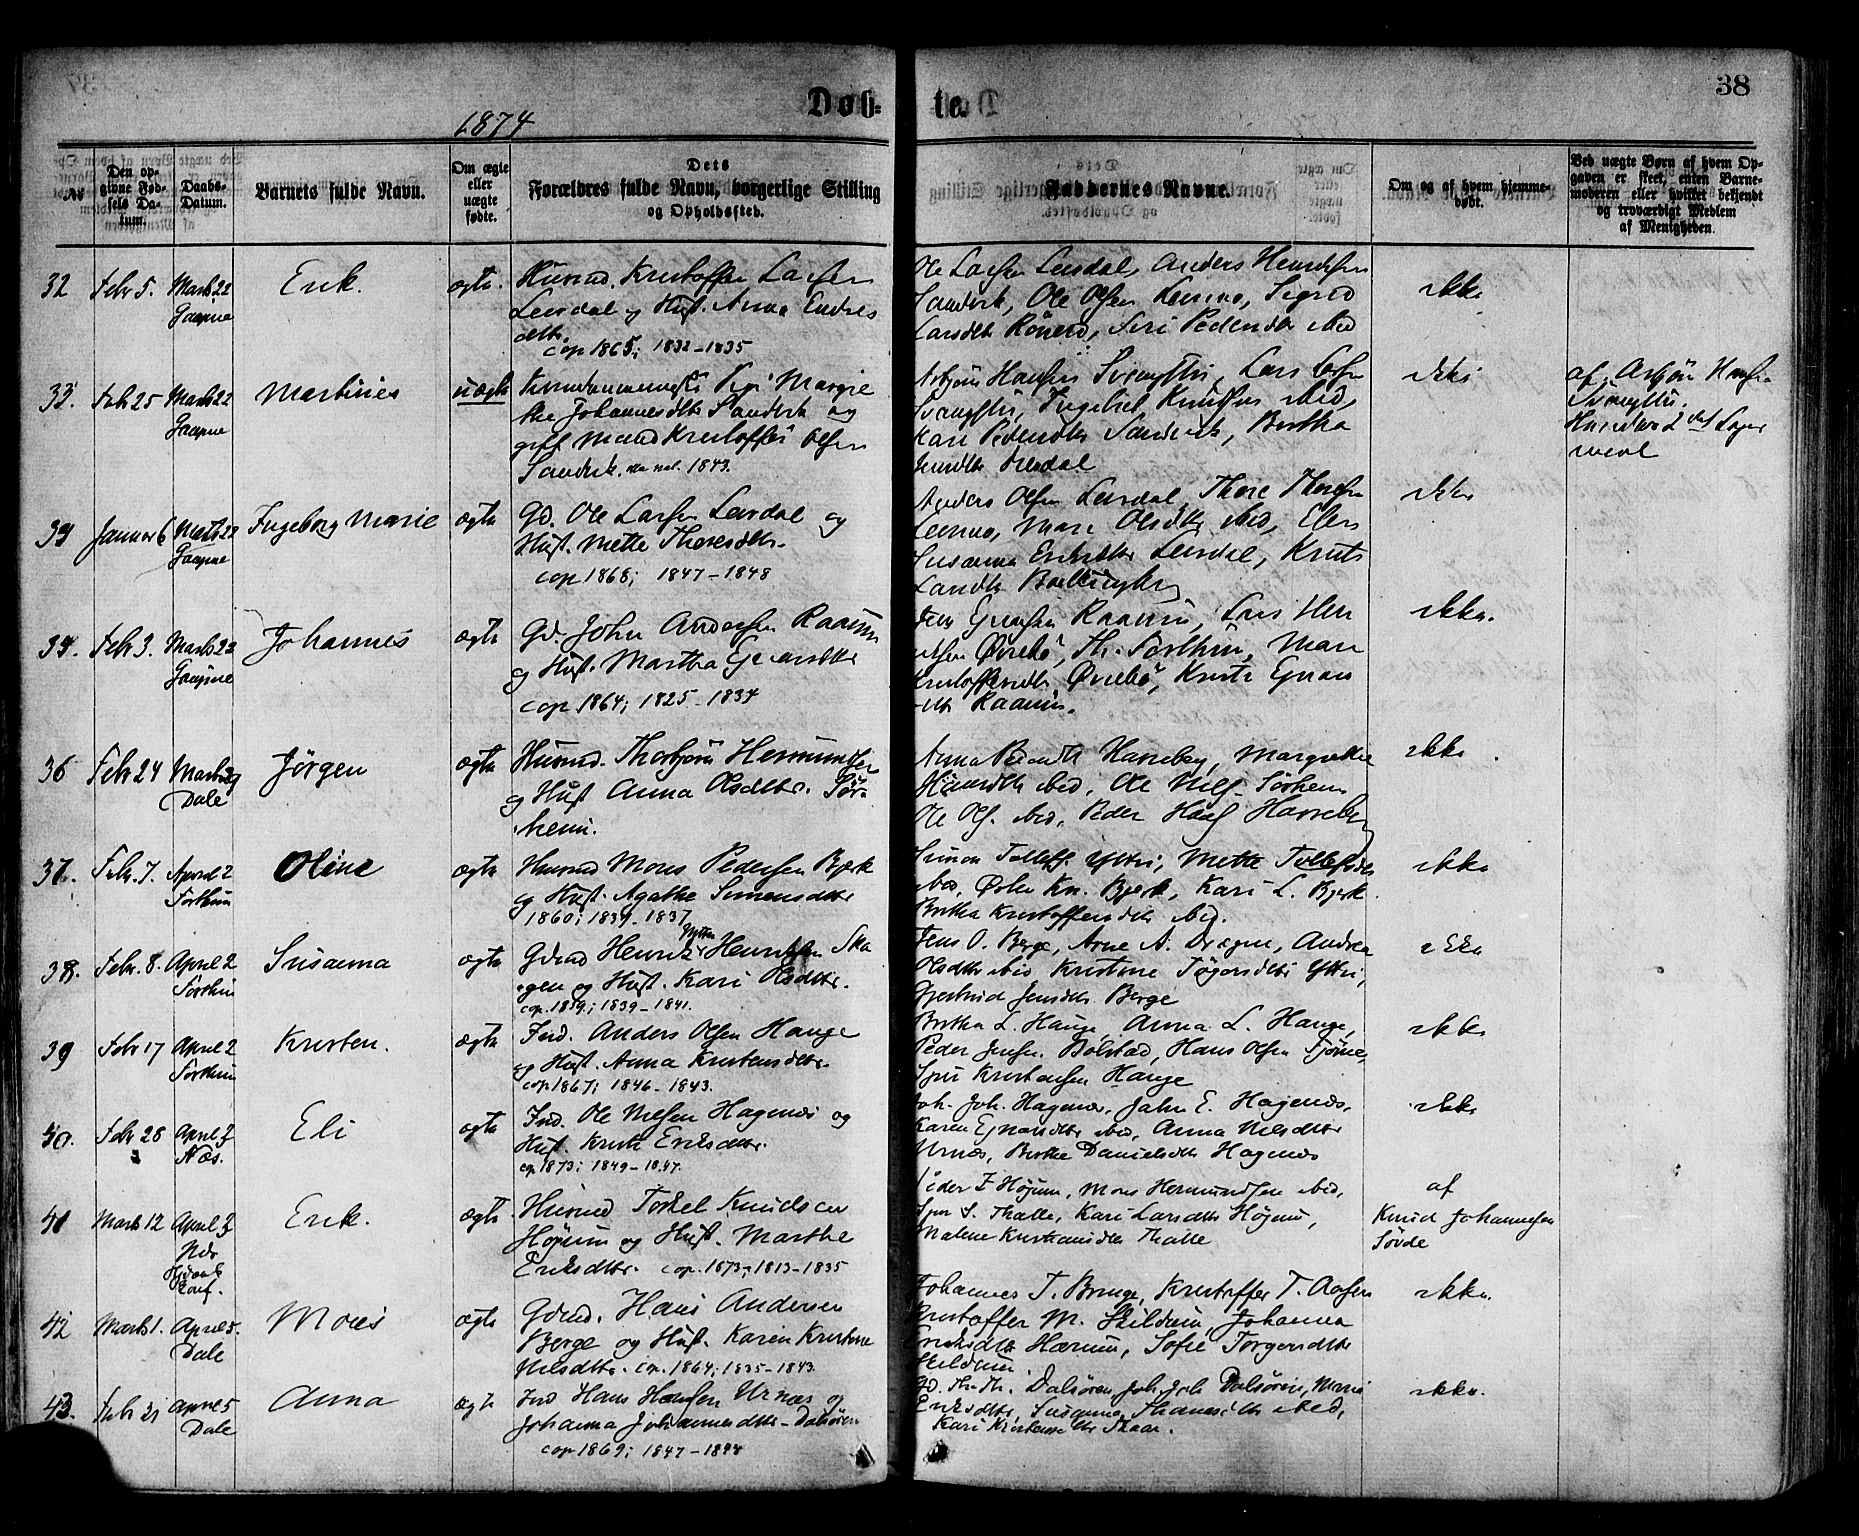 38
Døb-
te.
1874
No
Den op-
givne Fød-
sels Da-
tum.
Daabs-
Datum.
Barnets fulde Navn.
Om ægte
eller
uægte
fødte.
Dets
Forældres fulde Navn, borgerlige Stilling
og Opholdssted.
Faddernes Navne.
Om og af hvem hjemme-
døbt.
Ved uægte Børn af hvem Op-
gaven er skeet, enten Barne-
moderen eller hvilket bekjendt
og troværdigt Medlem
af Menigheden.
32
Febr 5.
Marts 22
Gaupne
Erik.
ægte.
Husmd. Kristoffer Larsen
Leirdal og Hust. Anna Endres
dtr.
cop 1865; 1832-1835
Ole Larsen Leirdal, Anders Henriksen
Sandvik, Ole Olsen Leirmo, Sigrid
Larsdtr Røneid, Siri Pedersdtr ibid
ikke
33.
Febr 25
Marts 22
Gaupne
Martinus
uægte
Johannesdtr Sandvik og
gift Mand Kristoffer Olsen
Sandvik. 1843.
Asbjørn Hansen
Kari Pedersdtr Sandvik, Bertha
Jensdtr Leirdal
ikke
af Asbjørn Hansen
34
Januar 6
Marts 22
Gaupne
Ingeborg Marie
ægte
Gd. Ole Larsen Leirdal og
Hust. Mette Thoresdtr.
cop 1868; 1847-1848
Anders Olsen Leirdal, Thore Thoresen
Leirmo, Mari Olsdtr ibid, Elen
Susanna Eriksdtr Leirdal,
ikke
Febr 3.
Marts 22
Gaupne
Johannes
ægte
Gd. John Andersen Raaum
og Hust. Martha
cop 1864; 1825-1834
Raaum, Lars Hen
riksen Øvrebø, Th. Forthun, Mari
Kristoffersdtr Øvrebø,
dtr Raaum.
ikke.
36
Febr 24
Marts 29
Dale
Jørgen
ægte
Husmd. Thorbjørn Hermundsen
og Hust Anna Olsdtr. Sør-
heim.
Anna Harreberg, Margrethe
ibid, Ole Nils. Sørheim
Ole Ols. ibid, Peder Harreberg
ikke
37.
Febr. 7.
April 2
Forthun
Oline
ægte
Husmd Mons Pedersen Bjerk
og Hust. Agathe Simensdtr
1860; 1839-1837
Simon Tollefs. Yttri, Mette Tollefsdtr
ibid, Østen Kn. Bjerk, Kari L. Bjerk
Bertha Kristoffersdtr ibid.
ikke
38.
Febr. 8.
April 2
Forthun
Susanna
ægte
Gdmd Henrik Henriksen Ska
gen og Hust. Kari Olsdtr.
cop. 1859; 1839-1841.
Jens O. Berge, Arne A. Drægni, Andrea
Olsdtr ibid Kristine Tøgersdtr Yttri,
Gjertrud Jensdtr Berge
ikke
39
Febr 17
April 2
Forthun
Kristen.
ægte
Ind. Anders Olsen Hauge
og Hust. Anna Kristensdtr.
cop 1867; 1846-1843.
Bertha L. Hauge, Anna L. Hauge,
Peder Jensen Bolstad, Hans Olsen Fjørne,
Kristensen Hauge
ikke
40.
Febr 28
April 3
Næs.
Eli
ægte
Ind. Ole Nielsen Hagenæs og
Hust. Eriksdtr.
cop. 1873; 1849-1847.
Joh. Joh. Hagenæs, John E. Hagenæs,
Karen ibid, Anna Nilsdtr
Urnæs, Berthe Danielsdtr Hagenæs
ikke
41
Marts 12
April 3
Næs
Erik.
ægte
Husmd Torkel Knudsen
Høyum og Hust. Marthe
Eriksdtr. cop. 1873; 1813-1835
Peder I Høyum, Mons Hermundsen ibid,
S. Thalle, Kari Larsdtr Høyum,
Malene Thalle
af
Knud Johannesen
Søvde
42
Marts 1.
April 5.
Dale
Mons
ægte
Gdmd. Hans Andersen
Berge og Hust. Karen Kristine
Nilsdtr. cop. 1864; 1835-1843
Johannes T. Bringe, Kristoffer T. Aasen
Kristoffer M. Skildum, Johanna
Eriksdtr Hærum, Sofie Torgersdtr
Skildum
ikke.
43.
Febr 21
April 5
Dale
Anna
ægte
Ind Hans Hansen Urnæs og
Johanna Johannesdtr Dalsøren
cop 1869; 1847-1844
Gd. Th. Th. Dalsøren, Joh. Joh Dalsøren,
Eriksdtr, Susanna ibid,
Kari
ikke.